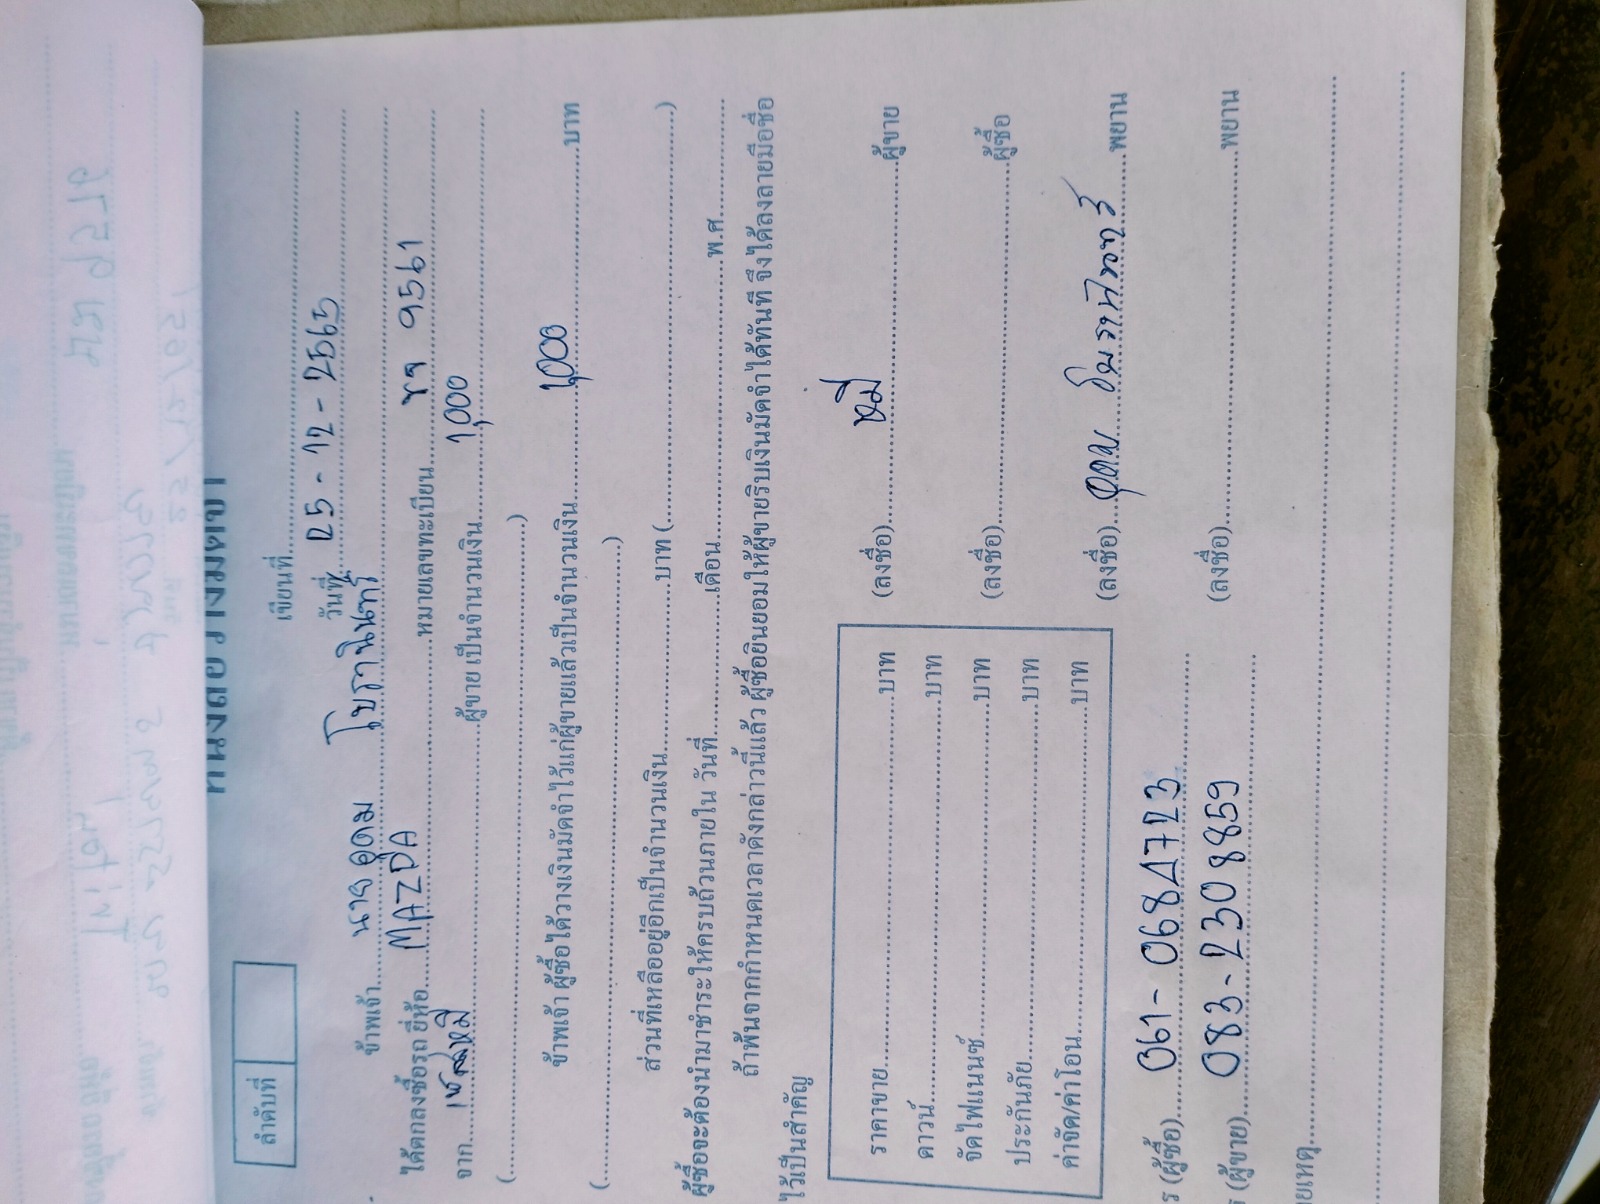 หนังสือวางมัดจำ
ลำดับที่
เขียนที่
วันที่ 25 - 12 - 2565
ข้าพเจ้า นายอุดม โบรานินทร์
ได้ตกลงซื้อรถ ยี่ห้อ MAZDA หมายเลขทะเบียน 9561
จาก ผู้ขาย เป็นจำนวนเงิน 1,000
(........)
ข้าพเจ้า ผู้ซื้อได้วางเงินมัดจำไว้แก่ผู้ขายแล้วเป็นจำนวนเงิน 1,000 บาท
(........)
ส่วนที่เหลืออยู่อีกเป็นจำนวนเงิน........บาท (........)
ผู้ซื้อจะต้องนำมาชำระให้ครบถ้วนภายใน วันที่........เดือน........พ.ศ.........
ถ้าพ้นจากกำหนดเวลาดังกล่าวนี้แล้ว ผู้ซื้อยินยอมให้ผู้ขายริบเงินมัดจำได้ทันที จึงได้ลงลายมือชื่อ
ไว้เป็นสำคัญ
ราคาขาย........บาท
ดาวน์........บาท
จัดไฟแนนซ์........บาท
ประกันภัย........บาท
ค่าจัด/ค่าโอน........บาท
(ลงชื่อ) หมี ผู้ขาย
(ลงชื่อ)........ผู้ซื้อ
(ลงชื่อ) อุดม โบรานินทร์ พยาน
(ลงชื่อ)........พยาน
ร (ผู้ซื้อ) 061 - 0684723
ร (ผู้ขาย) 083 - 2308859
ายเหตุ........